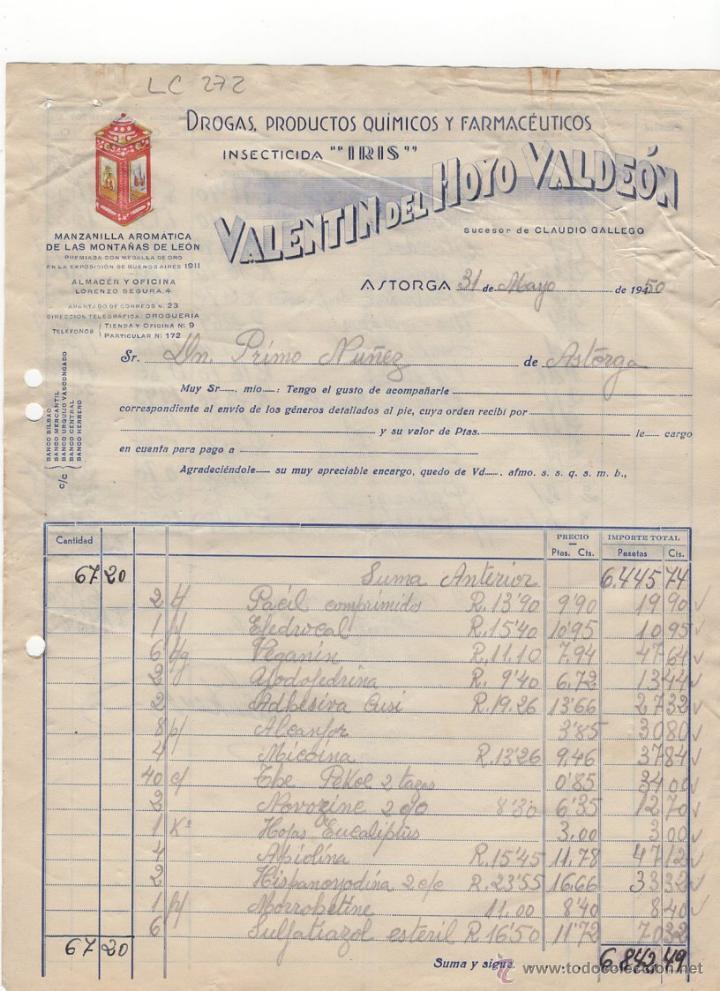 LC 272
DROGAS, PRODUCTOS QUÍMICOS Y FARMACÉUTICOS
INSECTICIDA ""IRIS""
VALENTIN DEL HOYO VALDEÓN
sucesor de CLAUDIO GALLEGO
MANZANILLA AROMÁTICA
DE LAS MONTAÑAS DE LEÓN
PREMIADA CON MEDALLA DE ORO
EN LA EXPOSICIÓN DE BUENOS AIRES 1911
ALMACÉN Y OFICINA
LORENZO SEGURA, 4
APARTADO DE CORREOS N. 23
DIRECCIÓN TELEGRÁFICA: DROGUERÍA
TELÉFONOS { TIENDA Y OFICINA Nº 9
PARTICULAR Nº 172
ASTORGA 31 de Mayo de 1950
Sr. Dn. Primo Nuñez de Astorga
Muy Sr. mio: Tengo el gusto de acompañarle
correspondiente al envío de los géneros detallados al pie, cuya orden recibí por
y su valor de Ptas. le cargo
en cuenta para pago a
Agradeciéndole su muy apreciable encargo, quedo de Vd. afmo. s. s. q. s. m. b.,
c/c { BANCO BILBAO
BANCO MERCANTIL
BANCO URQUIJO VASCONGADO
BANCO CENTRAL
BANCO HERRERO
Cantidad PRECIO IMPORTE TOTAL
Ptas. Cts. Pesetas Cts.
67 20 Suma Anterior 6.445 74
2 Pacil comprimidos R. 13'90 9'90 19 90
1 Efedrocal R. 15'40 10'95 10 95
6 Veganin R. 11,10 7.94 47 64
2 R. 9'40 6.72 13 44
2 Adhesiva Cusi R. 19.26 13'66 27 32
8 p/ Alcanfor 3'85 30 80
4 Micoina R. 13'26 9,46 37 84
40 c/ The Pekoe 2 tazas 0'85 34 00
2 Novozine 2 8'30 6'35 12 70
1 Kº Hojas Eucaliptus 3,00 3 00
4 Apiolina R. 15'45 11.78 47 12
2 Hispanoyodina 2 c/c R. 23'55 16.66 33 32
1 Morrobetine 11.00 8'40 8 40
6 Sulfatiazol esteril R 16'50 11'72 70 32
67 20 Suma y sigue. 6.842,49
www.todocoleccion.net